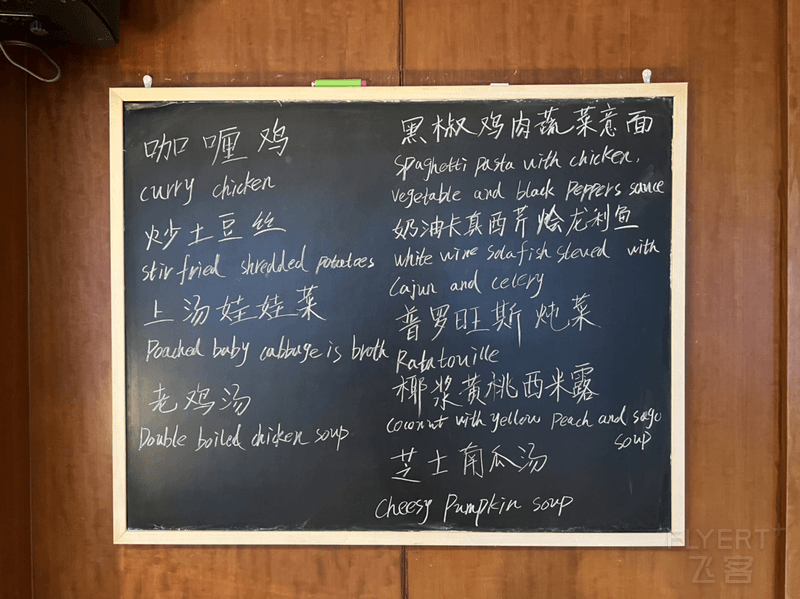 咖喱鸡
curry chicken
炒土豆丝
stir fried shredded potatoes
上汤娃娃菜
Poached baby cabbage is broth
老鸡汤
Double boiled chicken soup
黑椒鸡肉蔬菜意面
spaghetti pasta with chicken,
vegetable and black peppers sauce
奶油卡真西芹烩龙利鱼
white wine solafish stewed with
Cajun and celery
普罗旺斯炖菜
Ratatouille
椰浆黄桃西米露
coconut with yellow peach and sago
soup
芝士南瓜汤
cheesy Pumpkin soup
FLYERT+
飞客